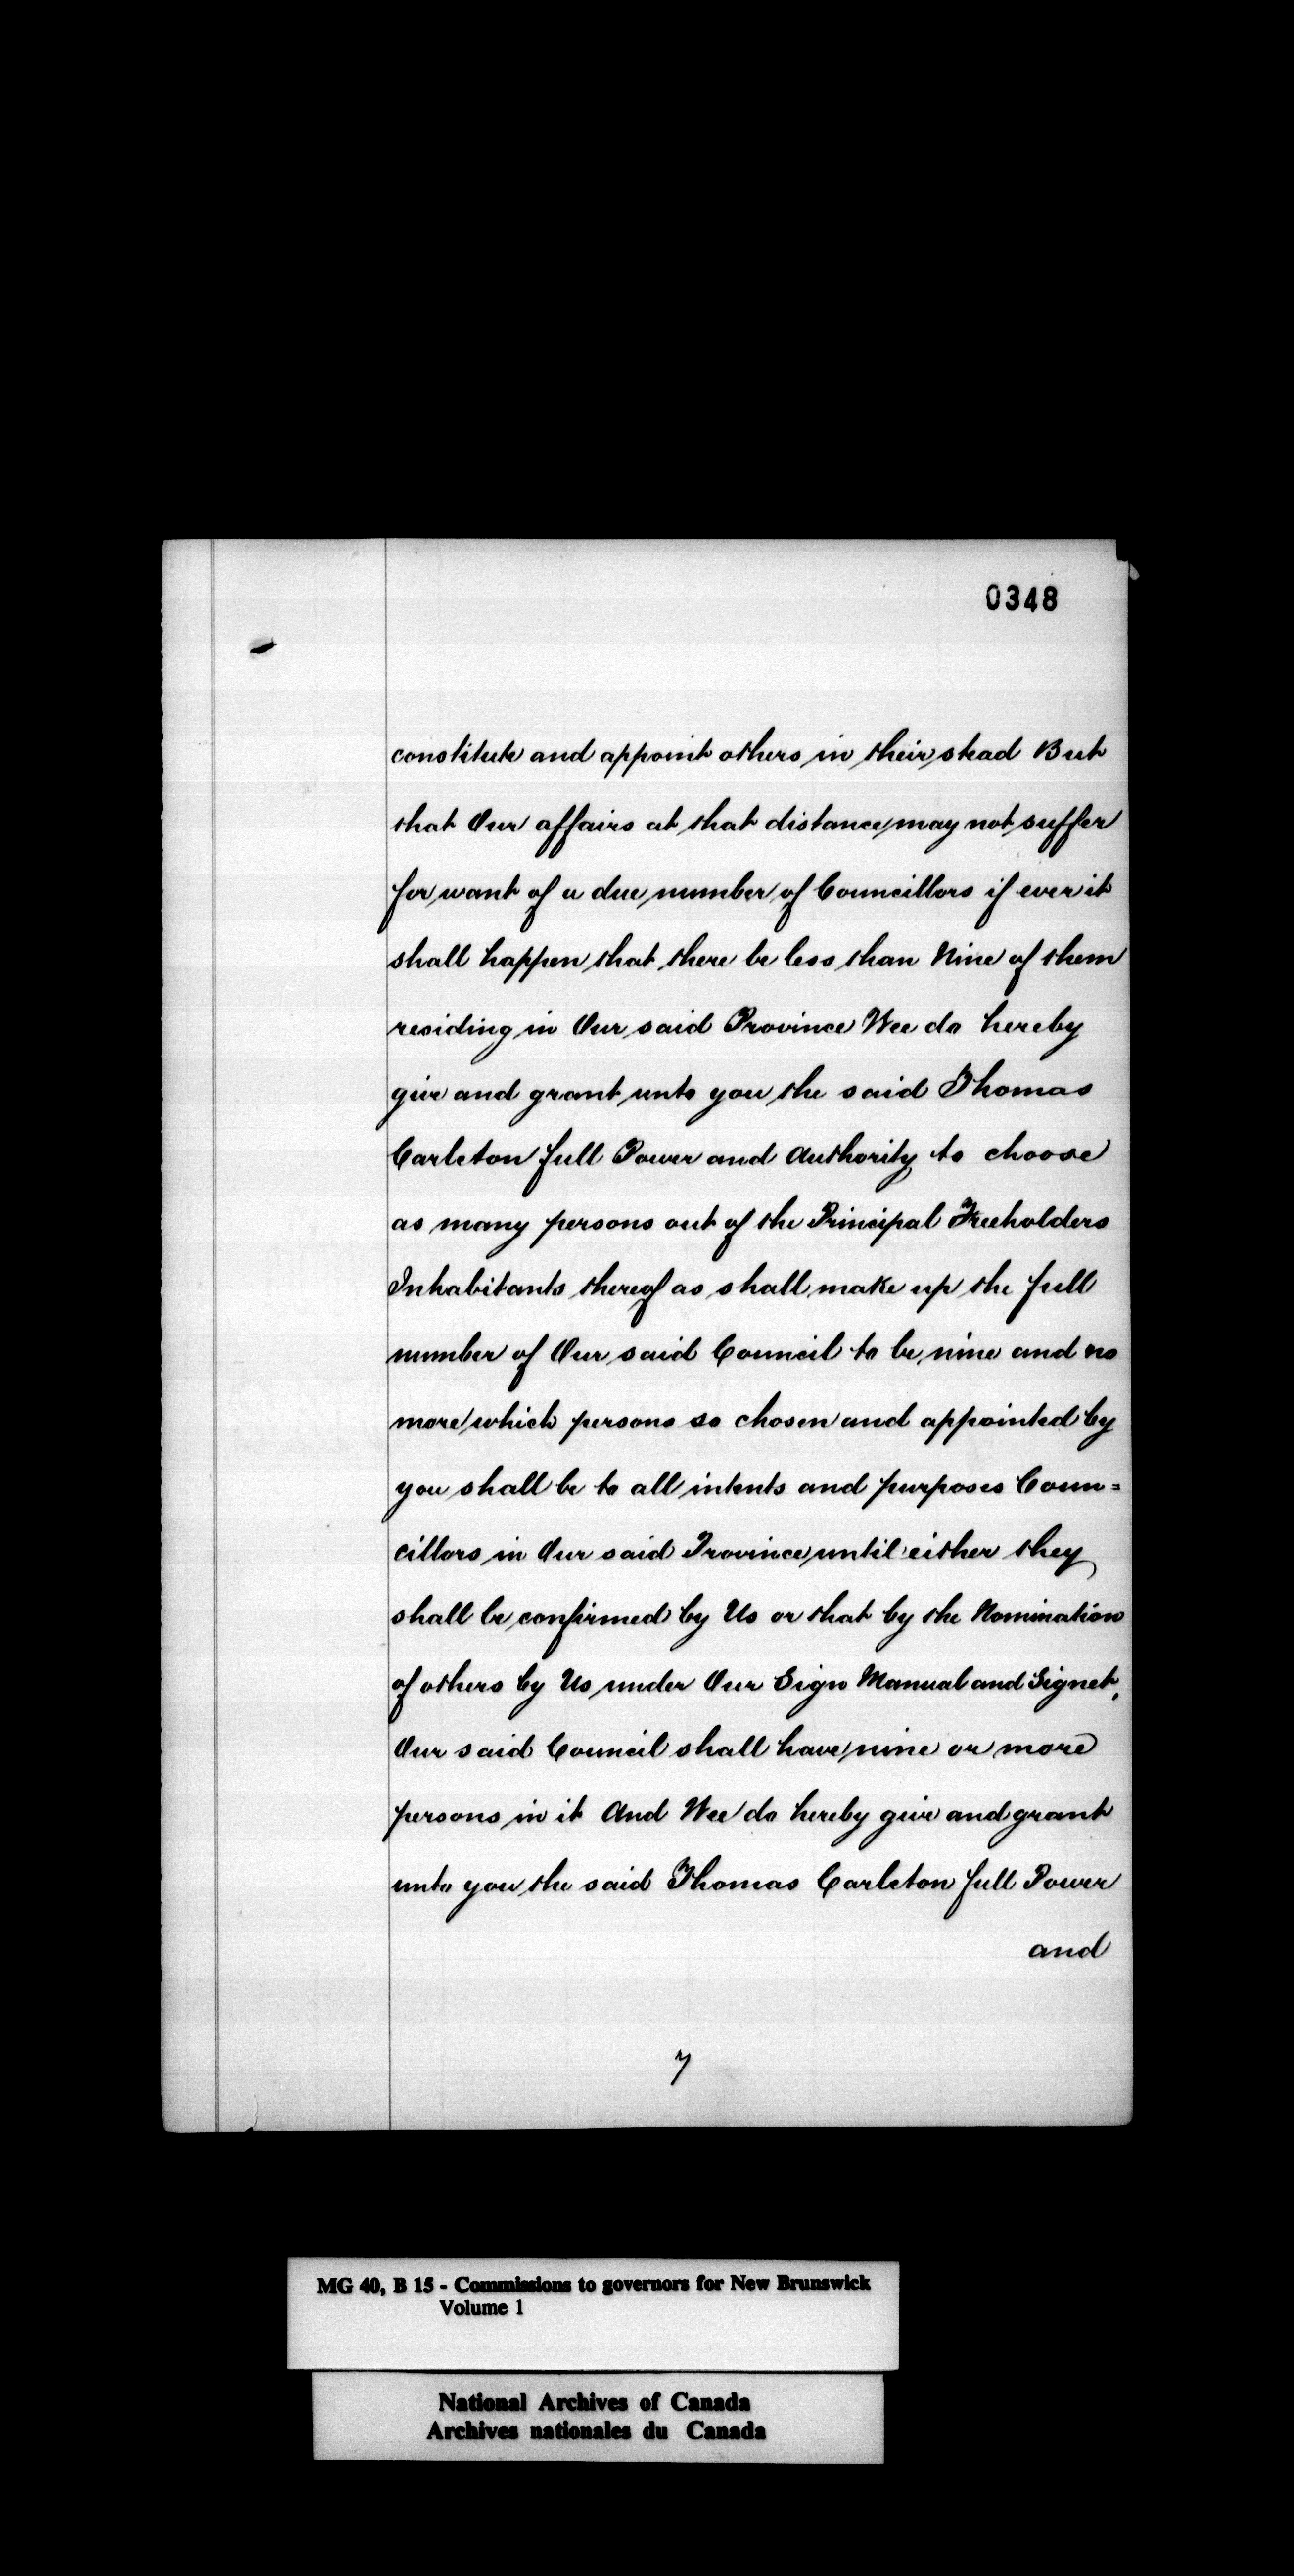 0348
constitute and appoint others in their stead But
that Our affairs at that distance may not suffer
for want of a due number of Councillors if ever it
shall happen that there be less than Nine of them
residing in Our said Province Wee do hereby
give and grant unto you the said Thomas
Carleton full Power and Authority to choose
as many persons out of the Principal Freeholders
Inhabitants thereof as shall make up the full
number of Our said Council to be nine and no
more which persons so chosen and appointed by
you shall be to all intents and purposes Coun=
cillors in Our said Province until either they
shall be confirmed by Us or that by the Nomination
of others by Us under Our Sign Manual and Signet,
Our said Council shall have nine or more
persons in it And Wee do hereby give and grant
unto you the said Thomas Carleton full Power
and
7
MG 40, B 15 - Commissions to governors for New Brunswick
Volume 1
National Archives of Canada
Archives nationales du Canada